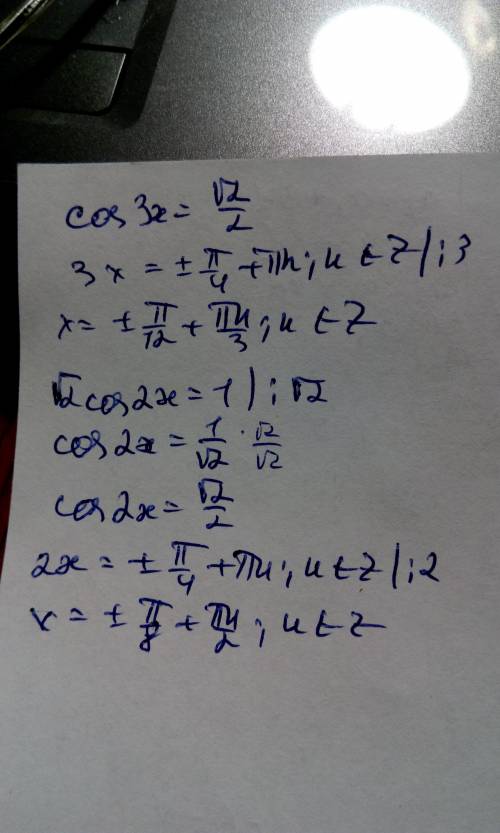 cos 3x = √2/2
3x = ± π/4 + πn; n ∈ Z | :3
x = ± π/12 + πn/3; n ∈ Z
√2 cos 2x = 1 | :√2
cos 2x = 1/√2 · √2/√2
cos 2x = √2/2
2x = ± π/4 + πn; n ∈ Z | :2
x = ± π/8 + πn/2; n ∈ Z